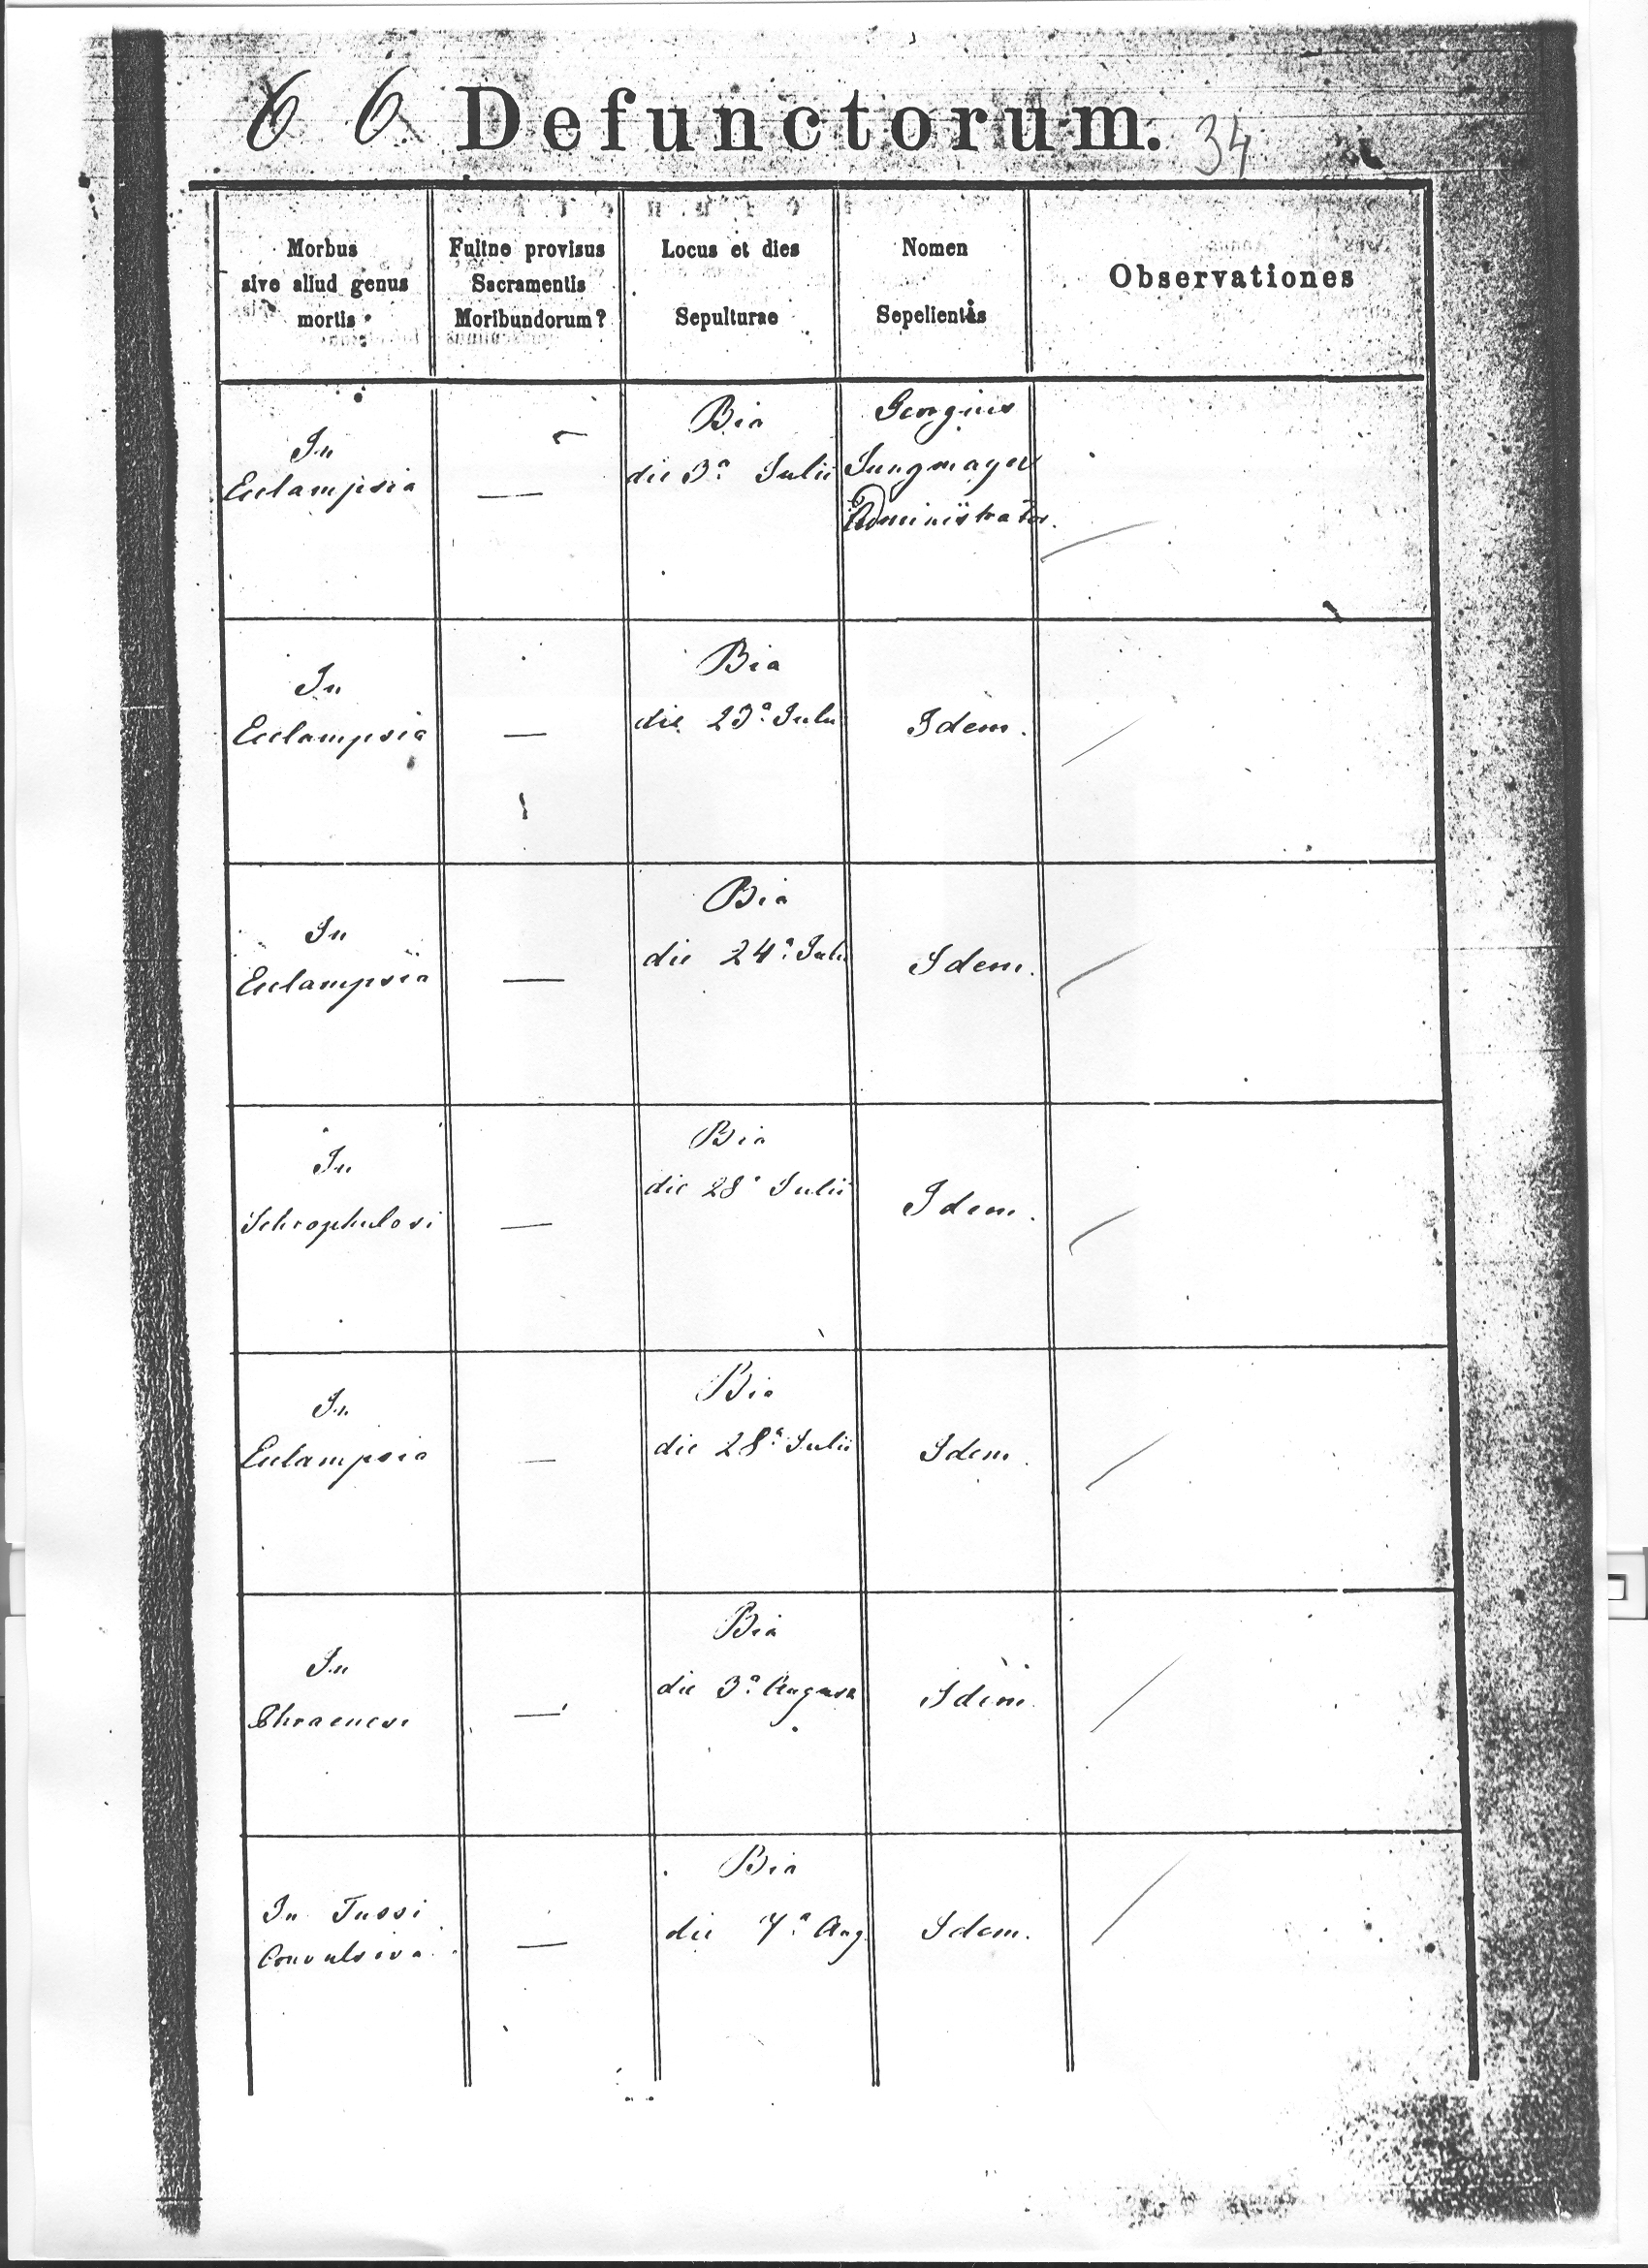 6 6 Defunctorum. 34
Morbus
sive aliud genus
mortis
Fuitne provisus
Sacramentis
Moribundorum?
Locus et dies
Sepulturae
Nomen
Sepelientis
Observationes
In
Eclampsia
—
Bia
die 3ª Julii
Georgius
Jungmayer
Administrator.
In
Ecclampsia
—
Bia
die 23ª Julii
Idem.
In
Eclampsia
—
Bia
die 24ª Julii
Idem.
In
Schrophulosi
—
Bia
die 28ª Julii
Idem.
In
Eclampsia
—
Bia
die 28ª Julii
Idem.
In
—
Bia
die 3ª Augusti
Idem.
In Tussi
Convulsiva
—
Bia
die 7ª Aug.
Idem.